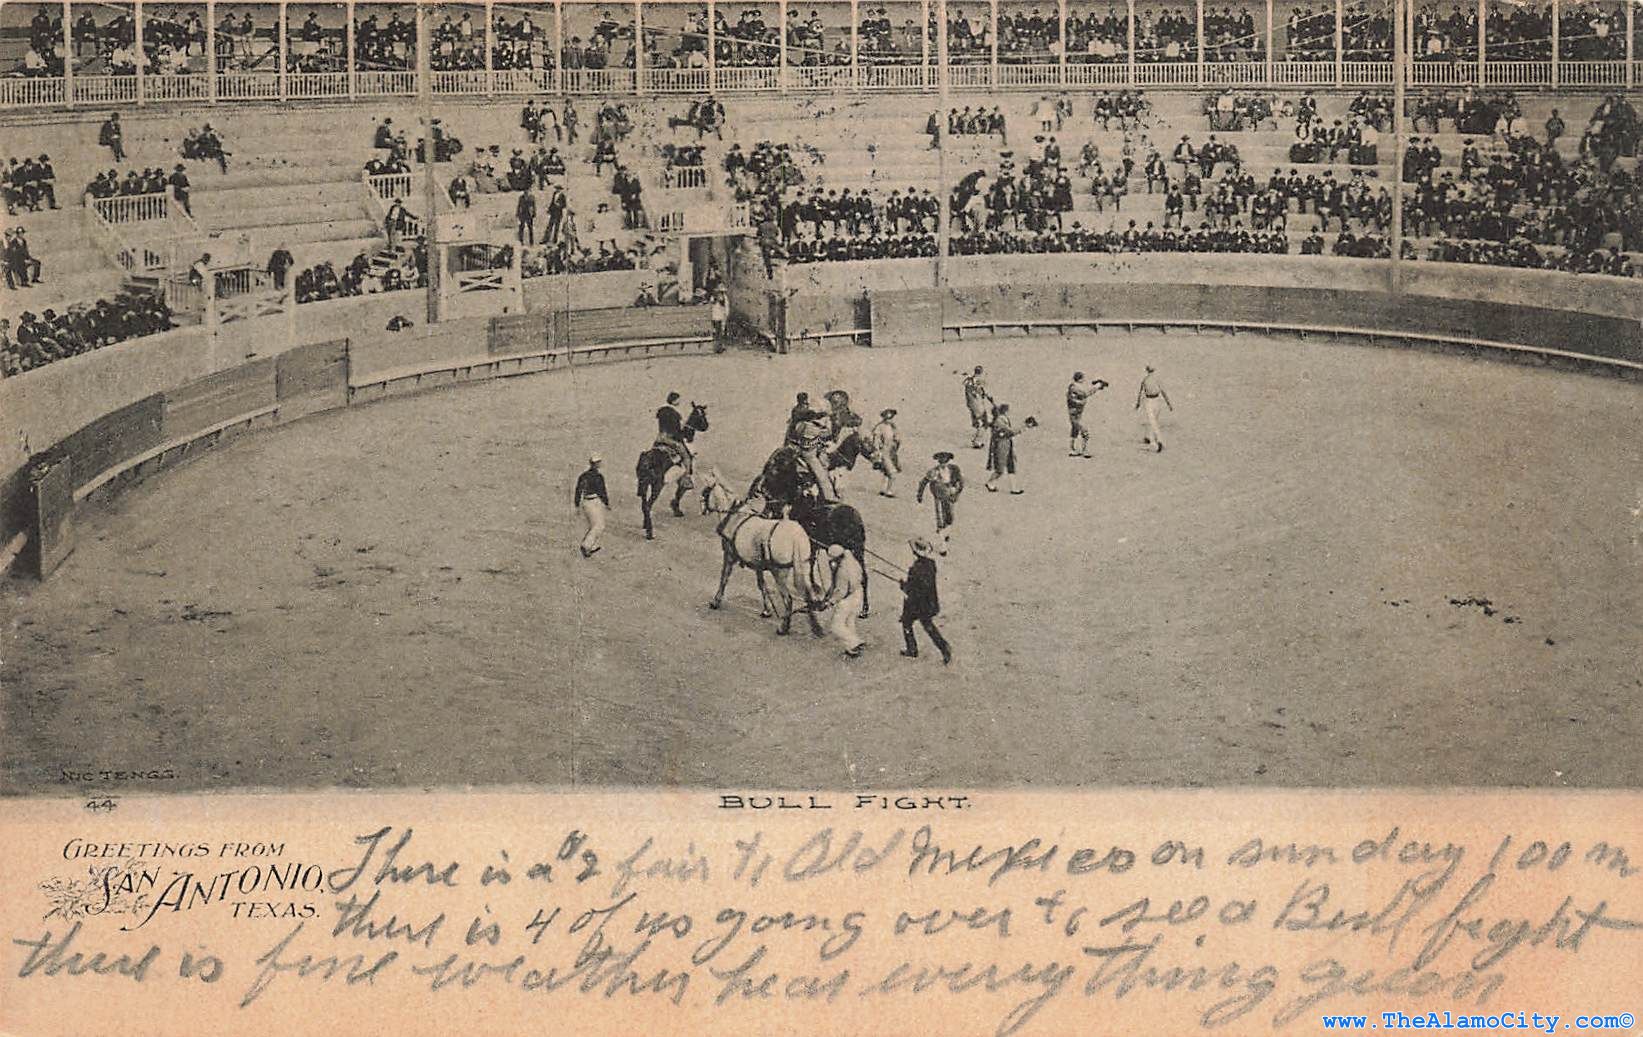 NIC TENGG.
44
BULL FIGHT.
GREETINGS FROM
SAN ANTONIO,
TEXAS.
There is a $2 fair to Old Mexico on sunday 100 m
there is 4 of us going over to see a Bull fight
there is fine weather hear every thing green
www.TheAlamoCity.com©